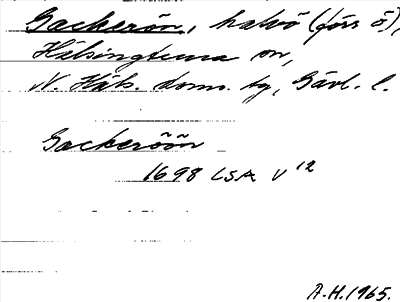 Gackerön, halvö (förr ö),
Hälsingtuna sn,
N. Häls. doms. tg, Gävl. l.
Gackeröön
1698 LSA V¹²
A.H. 1965.